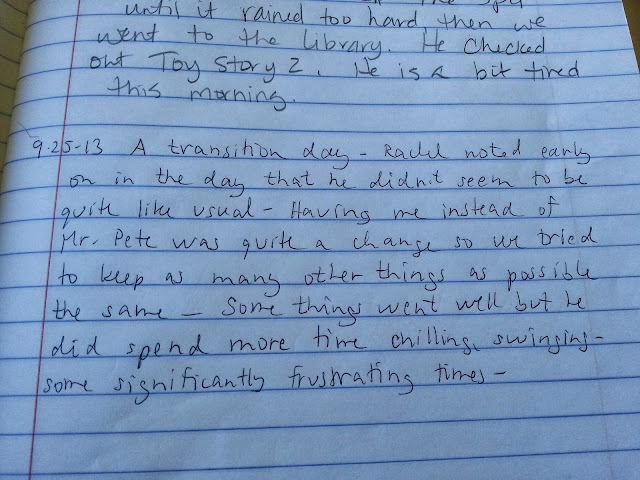 until it rained too hard then we
went to the library. He checked
out Toy Story 2. He is a bit tired
this morning.
9-25-13 A transition day - Rachel noted early
on in the day that he didn't seem to be
quite like usual - Having me instead of
Mr. Pete was quite a change so we tried
to keep as many other things as possible
the same - Some things went well but he
did spend more time chilling, swinging -
some significantly frustrating times -